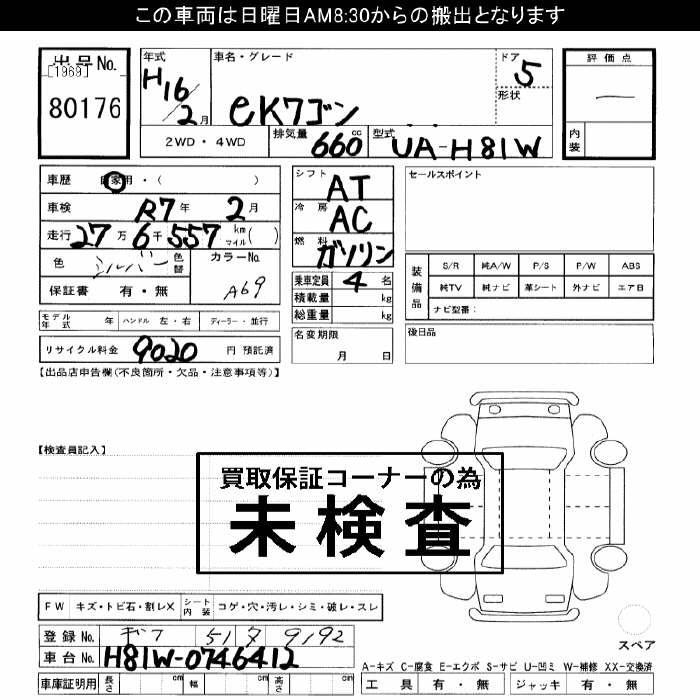 この車両は日曜日AM8:30からの搬出となります
出品No.
[1969]
80176
年式
H16/2月
車名・グレード
eKワゴン
ドア 5
形状
評価点
―
内装
2WD・4WD
排気量 660 cc
型式 UA-H81W
車歴 自家用・( )
車検 R7年 2月
走行 27万6千557 km マイル( )
色 シルバー 色替
カラーNo. A69
保証書 有・無
モデル年式 年 ハンドル 左・右 ディーラー・並行
リサイクル料金 9020 円 預託済
シフト AT
冷房 AC
燃料 ガソリン
乗車定員 4 名
積載量 kg
総重量 kg
名変期限
月 日
セールスポイント
装備品
S/R 純A/W P/S P/W ABS
純TV 純ナビ 革シート 外ナビ エアB
ナビ型番:
後日品
【出品店申告欄(不良箇所・欠品・注意事項等)】
【検査員記入】
買取保証コーナーの為
未検査
FW キズ・トビ石・割レX シート内装 コゲ・穴・汚レ・シミ・破レ・スレ
登録No. 51 9192
車台No. H81W-0746412
車庫証明用 長さ cm 幅 cm 高さ cm
スペア
A-キズ C-腐食 E-エクボ S-サビ U-凹ミ W-補修 XX-交換済
工具 有・無 ジャッキ 有・無